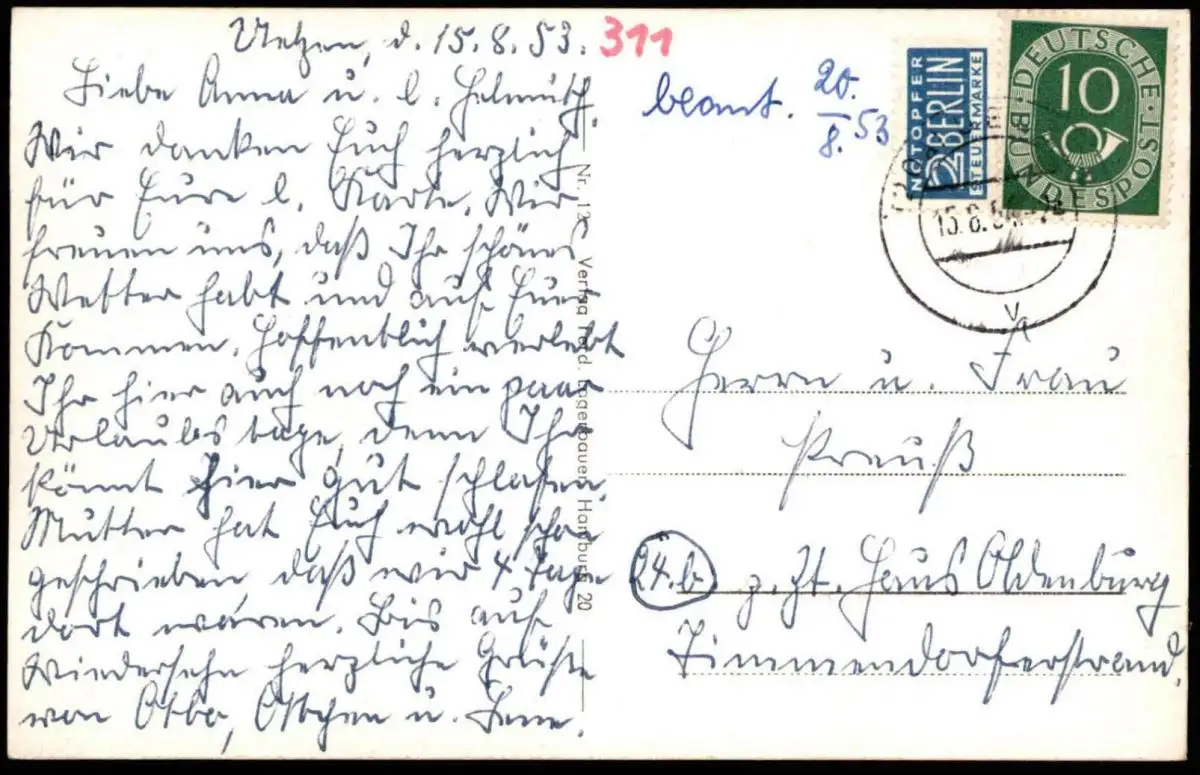 Uelzen, d. 15.8.53.
311
Liebe Anna u. l. Helmuth,
Wir danken Euch herzlich
für Eure l. Karte. Wir
freuen uns, daß Ihr schönes
Wetter habt und auf Euer
Kommen. Hoffentlich verlebt
Ihr hier auch noch ein paar
Urlaubstage, denn Ihr
könnt hier gut schlafen.
Mutter hat Euch wohl schon
geschrieben, daß wir 4 Tage
dort waren. Bis auf
Wiedersehn herzliche Grüße
von Otto, Ottchen u. Lene.
Nr. Verlag Ferd. Lagerbauer, Hamburg 20
beant. 20.
8.53
NOTOPFER
2 BERLIN
STEUERMARKE
DEUTSCHE BUNDESPOST
10
15.8.
V
Herrn u. Frau
Preuß
24.b z. Zt. Haus Oldenburg
Timmendorferstrand.